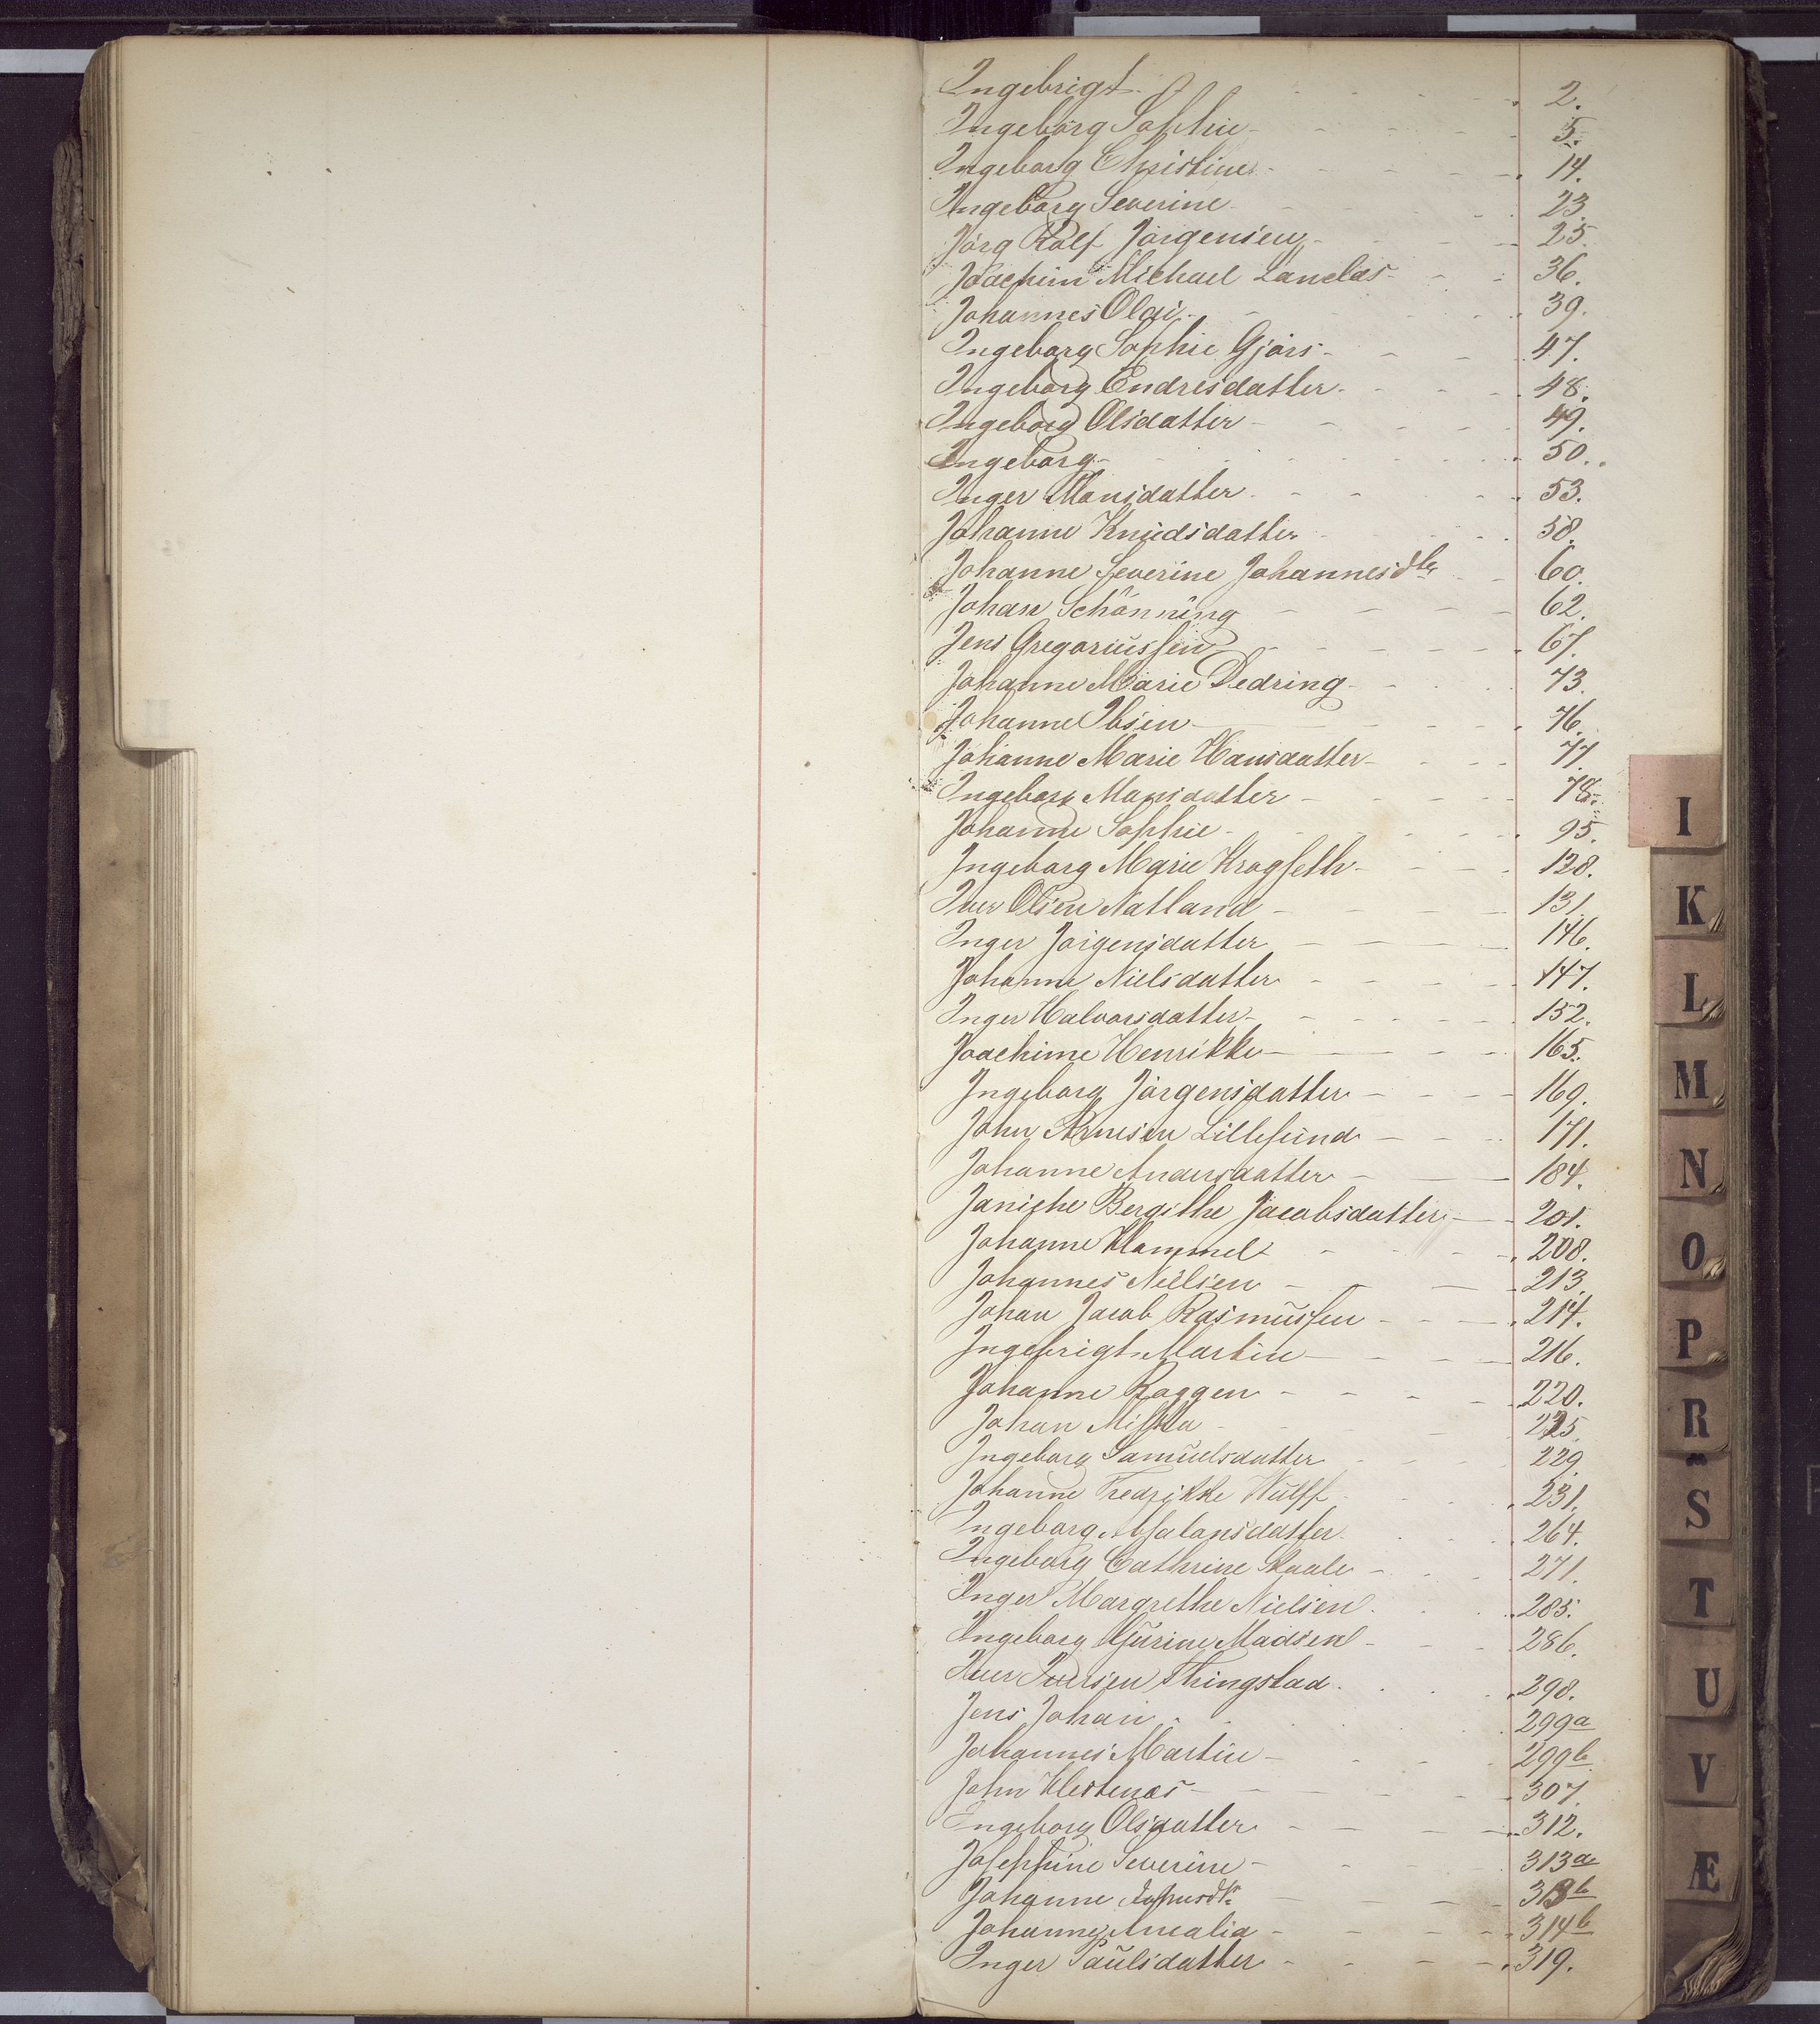 Ingebrigt 2.
Ingeborg Sophie 5.
Ingeborg Christine 14.
Ingeborg Severine 23.
Jörg Rolf Jörgensen 25.
Joachim Michael Landås 36.
Johannes Olai 39.
Ingeborg Sophie Gjörs 47.
Ingeborg Endresdatter 48.
Ingeborg Olsdatter 49.
Ingeborg 50.
Inger Monsdatter 53.
Johanne Knudsdatter 58.
Johanne Severine Johannesdtr 60.
Johan Schönning 62.
Jens Gregoriussen 67.
Johanne Marie Dedring 73.
Johanne Ibsen 76.
Johanne Marie Hansdatter 77.
Ingeborg Monsdatter 78.
Johanne Sophie 95.
Ingeborg Marie Krogseth 128.
Iver Olsen Natland 131.
Inger Jörgensdatter 146.
Johanne Nielsdatter 147.
Inger Halvorsdatter 152.
Joachime Henrikke 165.
Ingeborg Jörgensdatter 169.
John Arnesen Lillesund 171.
Johanne Andersdatter 184.
Janiche Bergithe Jacobsdatter 201.
Johanne Hammel 208.
Johannes Nielsen 213.
Johan Jacob Rasmussen 214.
Ingebrigt Martin 216.
Johanne Roggen 220.
Johan 225.
Ingeborg Samuelsdatter 229.
Johanne Fredrikke Wulff 231.
Ingeborg Absalonsdatter 264.
Ingeborg Cathrine Staale 271.
Inger Margrethe Nielsen 285.
Ingeborg Gurine Madsen 286.
Iver Iversen Thingstad 298.
Jens Johan 299a
Johannes Martin 299b
John Hestenæs 307.
Ingeborg Olsdatter 312.
Josephine Severine 313a
Johanne Johnsdtr 313b
Johanne Amalia 314b
Inger Paulsdatter 319.
I
K
L
M
N
O
P
R
S
T
U
V
Æ